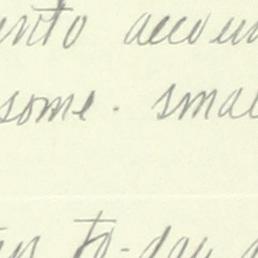 into accou
some. smal
to-day